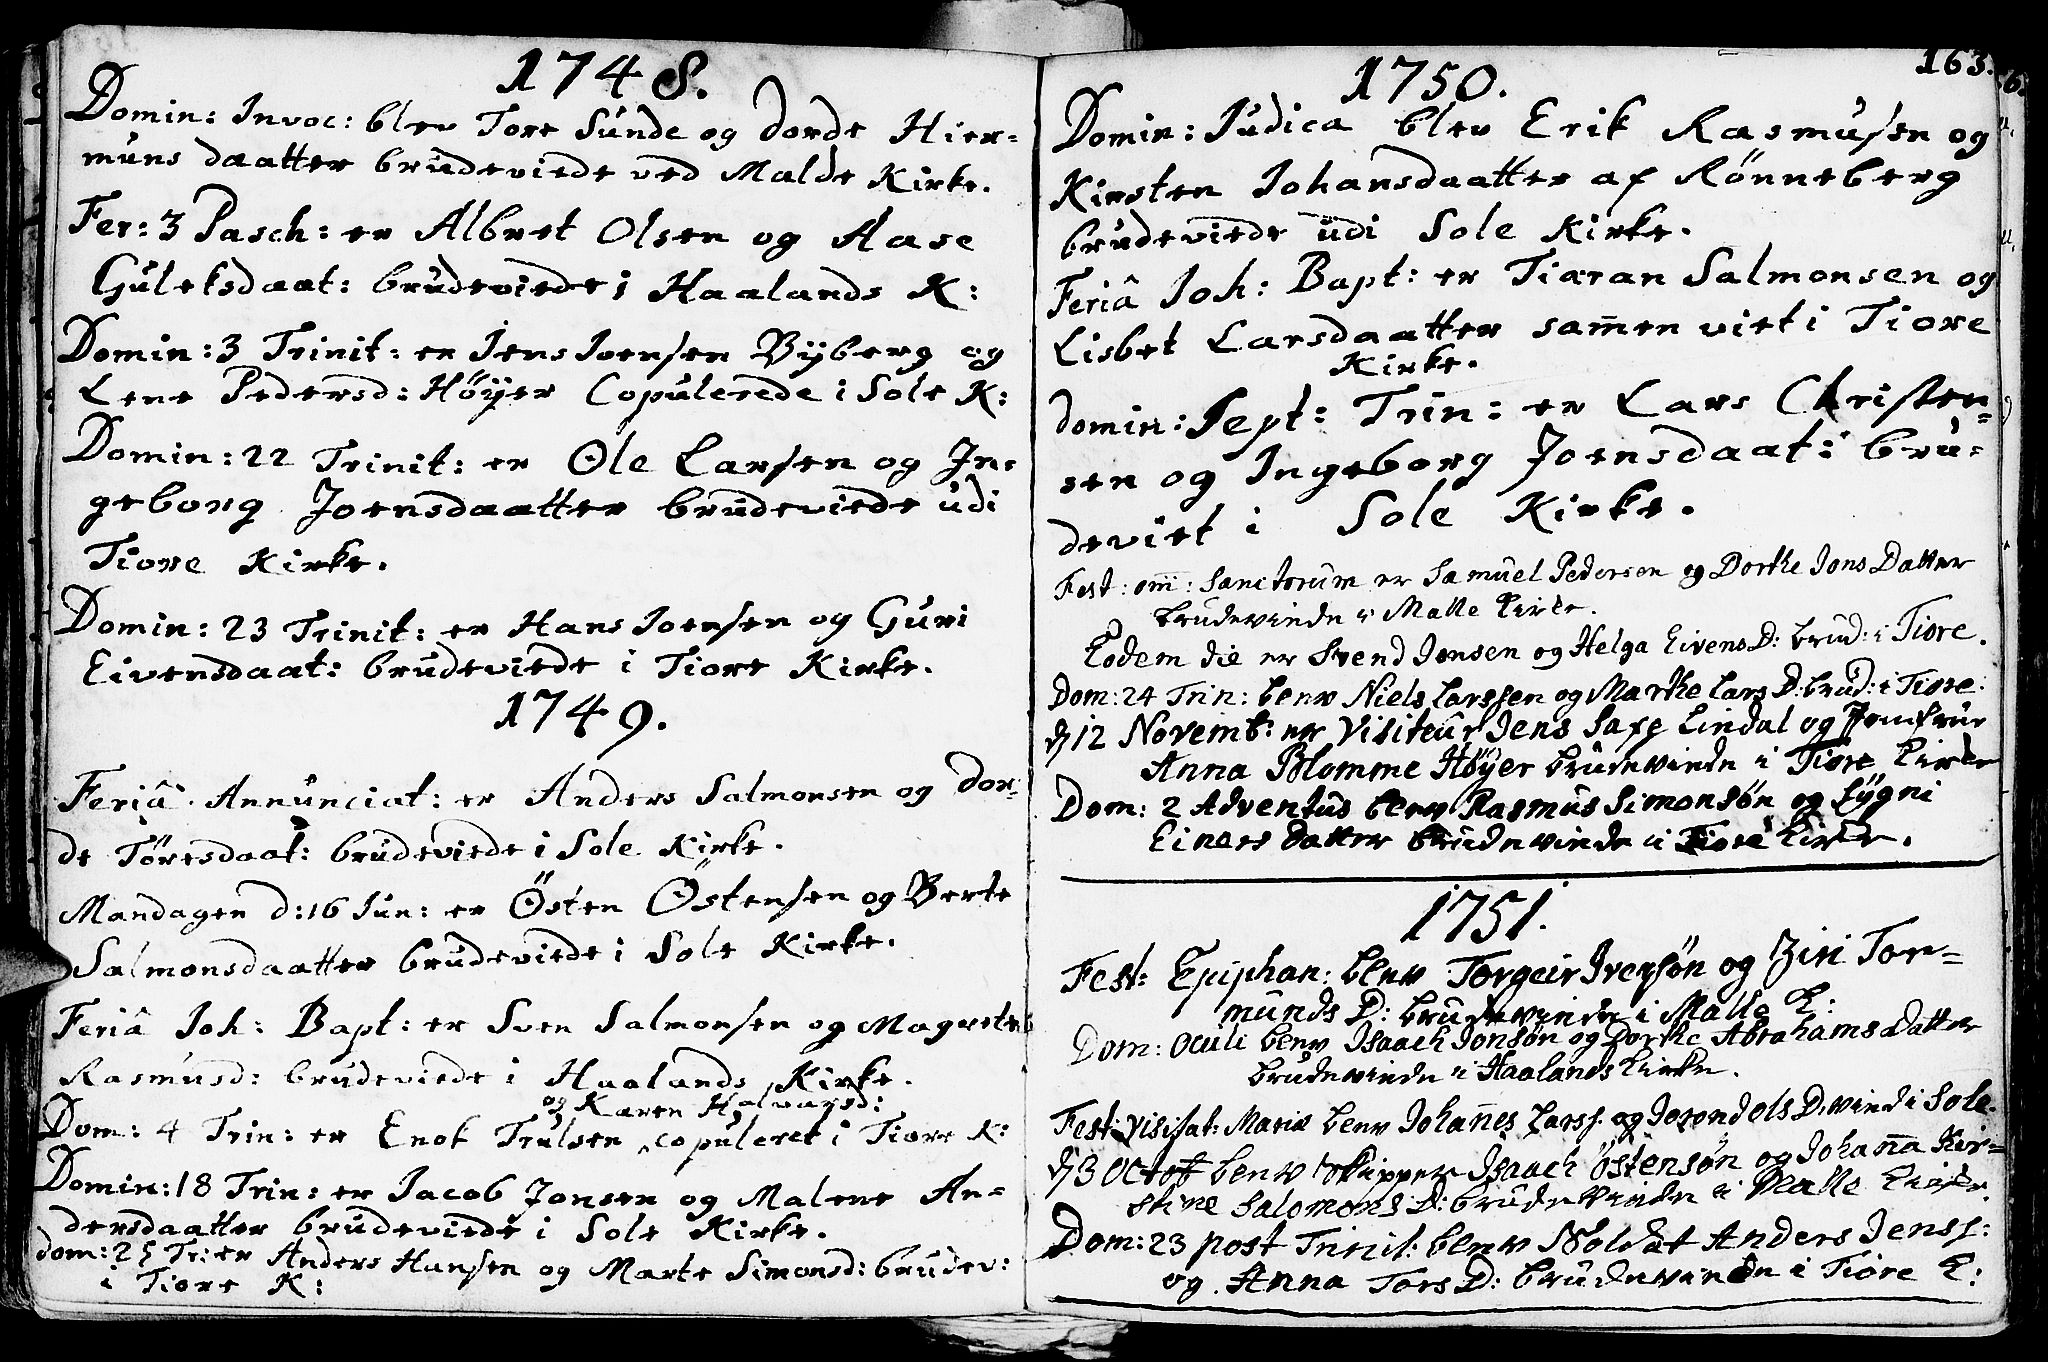 1748.
Domin: Invoc: blev Tore Sünde og dorde Hier=
müns daatter brüdeviede ved Malde Kirke.
Fer: 3 Pasch: er Albret Olsen og Aase
Güleksdaat: brüdeviede i Haalands K:
Domin: 3 Trinit: er Jens Joensen Byberg og
Lene Pedersd: Höÿer Copülerede i Sole K:
Domin: 22 Trinit: er Ole Larsen og In=
geborg Joensdaatter brüdeviede üdi
Tiore Kirke.
Domin: 23 Trinit: er Hans Joensen og Güri
Eivensdaat: brüdeviede i Tiore Kirke.
1749.
Feriâ Annünciat: er Anders Salmonsen og dor=
de Töresdaat: brüdeviede i Sole Kirke.
Mandagen d: 16 Jun: er Östen Östensen og Berte
Salmonsdaatter brüdeviede i Sole Kirke.
Feriâ Joh: Bapt: er Sven Salmonsen og Magrete
Rasmüsd: brüdeviede i Haalands Kirke.
og Karen Halvarsd:
Dom: 4 Trin: er Enok Trülsen copuleret i Tiore K:
Domin: 18 Trin: er Jacob Jonsen og Malene An=
dersdaatter brüdeviede i Sole Kirke.
dom: 25 Tr: er Anders Hansen og Marte Simonsd: brüdev:
i Tiore K:
163.
1750.
Domin: Judica blev Erik Rasmusen og
Kirsten Johansdaatter af Rönneberg
brüdeviede üdi Sole Kirke.
Feriâ Joh: Bapt: er Tiaran Salmonsen og
Lisbet Larsdaatter sam̄en viet i Tiore
Kirke.
domin: Sept: Trin: er Lars Christen=
sen og Ingeborg Joensdaat: brü=
deviet i Sole Kirke.
Fest: om̄: Sanctorum er Samuel Pedersen og Dorthe Jons Datter
brudeviede i Malle Kirke.
Eodem die er Svend Jonsen og Helga Eivens D: brud: i Tiore.
Dom: 24 Trin: blew Niels Larssen og Marthe Lars D: brud: i Tiore.
d 12 Novemb: er Visiteur Jens Saxe Lindal og Jomfrue
Anna Blomme Höyer brudeviede i Tiore Kirke
Dom: 2 Adventus blew Rasmus Simonsön og Sÿgni
Einers Datter brudeviede i Tiore Kirke.
1751.
Fest: Epiphan: blew Torgeir Iversön og Ziri Tor=
munds D: brudeviede i Malle K:
Dom: Oculi blew Isaach Jonsön og Dorthe Abrahams Datter
brudeviede i Haalands Kirke.
Fest: Visitat: Mariæ blew Johan̄es Larss. og Jorond Ols D: vied i Sole.
d 3 Octob blew Skipper Isaach Östensön og Johan̄a Kir=
stine Salomons D: brudeviede i Malle Kirke
Dom: 23 post Trinit: blew Soldat Anders Jenss:
og Anna Tors D: brudeviede i Tiore K: